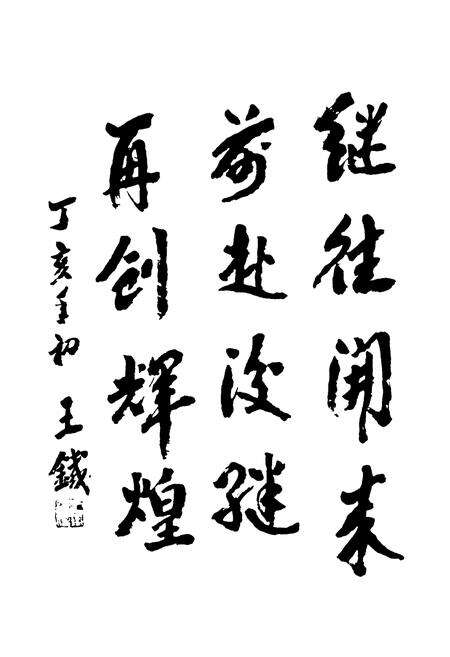 继往開来
前赴後継
再创輝煌
丁亥年初 王鐵